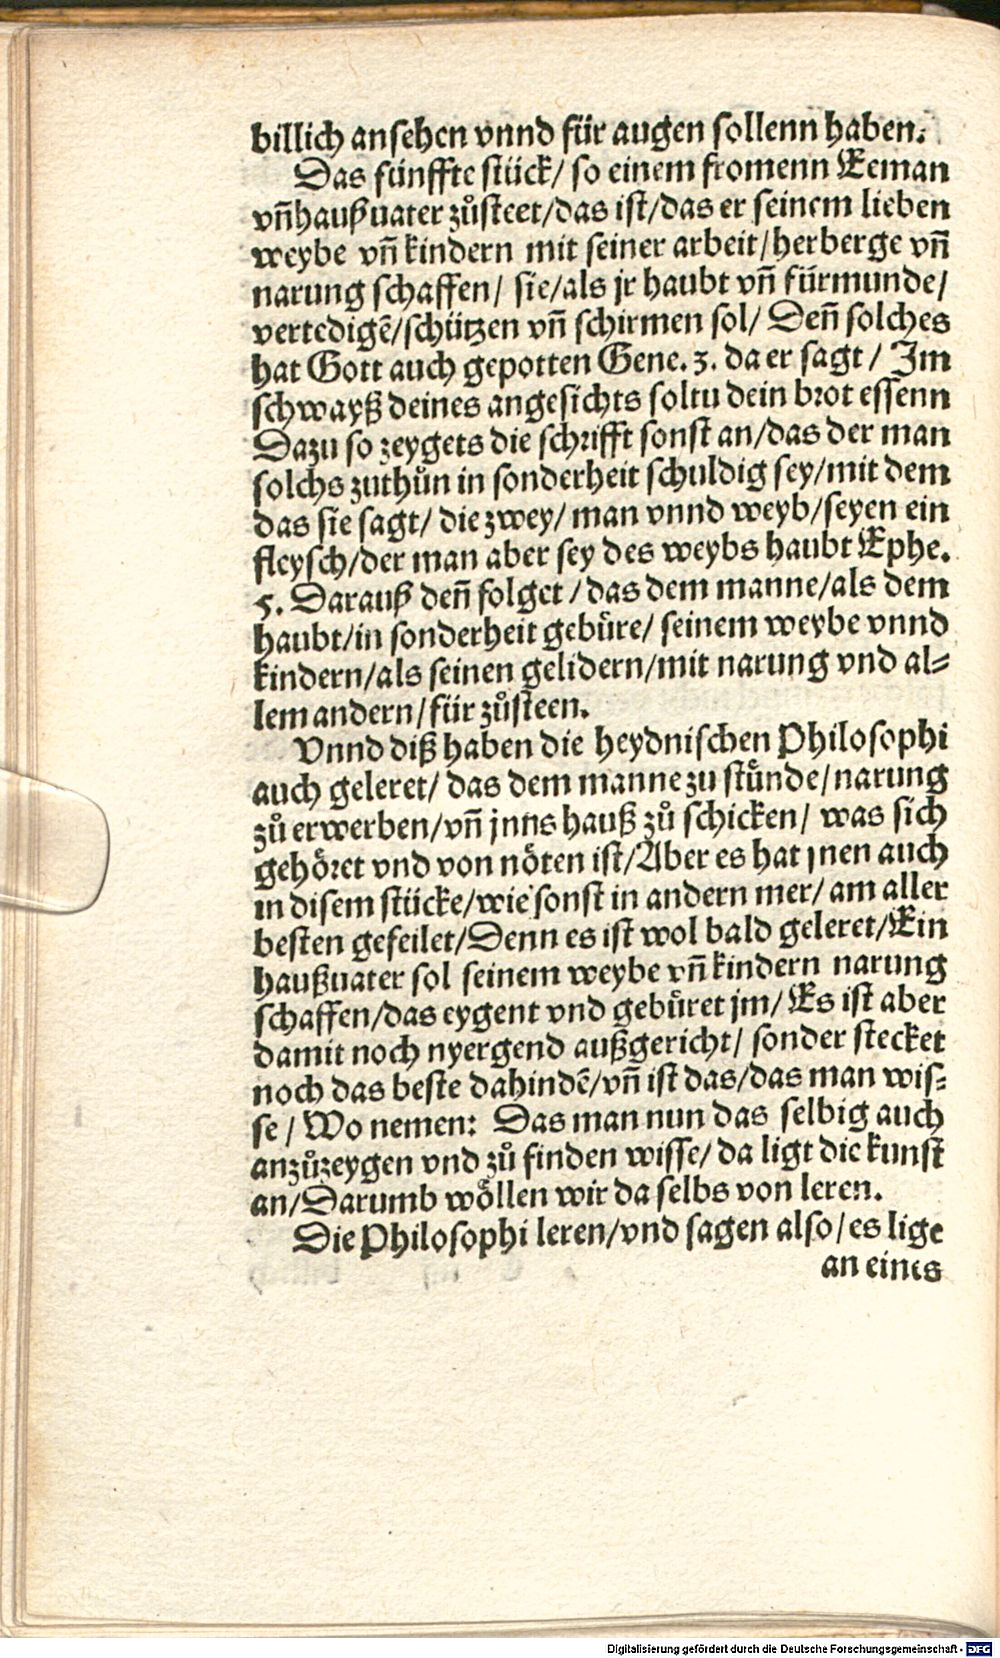 billich ansehen vnnd für augen sollenn haben.
Das fünffte stück/ so einem fromenn Eeman
vñhaußuater zůsteet/das ist/das er seinem lieben
weybe vñ kindern mit seiner arbeit/herberge vñ
narung schaffen/ sie/als jr haubt vñ fürmunde/
vertedigē/schützen vñ schirmen sol/ Deñ solches
hat Gott auch gepotten Gene. 3. da er sagt/ Im
schwayß deines angesichts soltu dein brot essenn
Dazu so zeygets die schrifft sonst an/das der man
solchs zuthůn in sonderheit schuldig sey/mit dem
das sie sagt/ die zwey/ man vnnd weyb/seyen ein
fleysch/der man aber sey des weybs haubt Ephe.
5. Darauß deñ folget/das dem manne/als dem
haubt/in sonderheit gebüre/ seinem weybe vnnd
kindern/als seinen gelidern/mit narung vnd al⸗
lem andern/für zůsteen.
Vnnd diß haben die heydnischen Philosophi
auch geleret/ das dem manne zu stünde/narung
zů erwerben/vñ jnns hauß zů schicken/ was sich
gehöret vnd von nöten ist/Aber es hat jnen auch
in disem stücke/wie sonst in andern mer/ am aller
besten gefeilet/Denn es ist wol bald geleret/Ein
haußuater sol seinem weybe vñ kindern narung
schaffen/das eygent vnd gebüret jm/ Es ist aber
damit noch nyergend außgericht/ sonder stecket
noch das beste dahindē/vñ ist das/das man wis⸗
se/ Wo nemen: Das man nun das selbig auch
anzůzeygen vnd zů finden wisse/ da ligt die kunst
an/Darumb wöllen wir da selbs von leren.
Die Philosophi leren/vnd sagen also/es lige
an eines
Digitalisierung gefördert durch die Deutsche Forschungsgemeinschaft - DFG